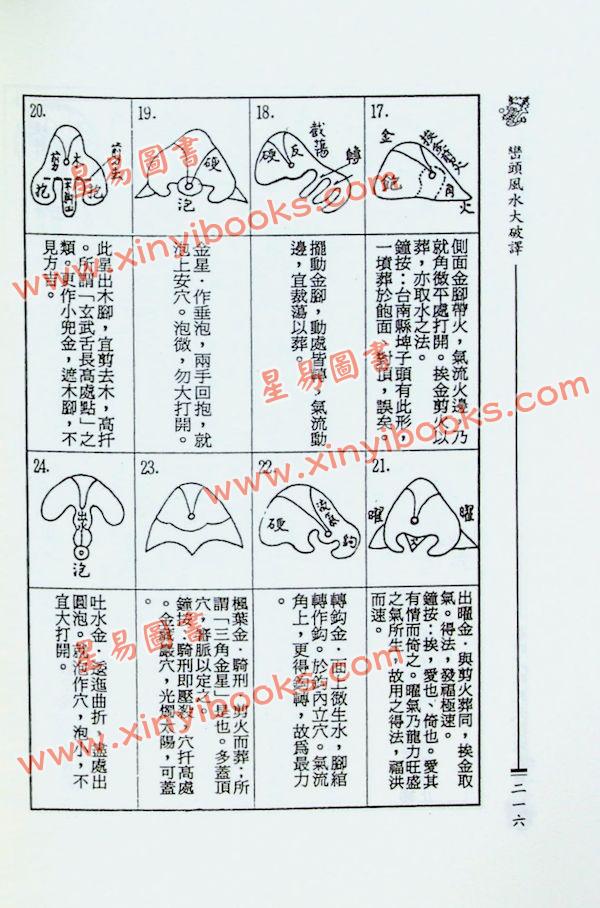 巒頭風水大破譯
二一六
17.
金
挨金剪火
鉋
角
火
側面金腳帶火，氣流火邊乃
就角微平處打開。挨金剪火以
葬，亦取水之法。
鐘按：台南縣埤子頭有此形，
一墳葬於飽面，封頂，誤矣。
18.
硬
反
裁蕩
轉
擺動金腳，動處皆轉，氣流動
邊，宜裁蕩以葬。
19.
硬
泡
金星．作垂泡，兩手回抱，就
泡上安穴。泡微，勿大打開。
20.
剪
木
抱
抱
此星出木腳，宜剪去木，高扦
。所謂「玄武舌長高處點」之
類。更作小兜金，遮木腳，不
見方吉。
21.
曜
曜
出曜金．與剪火葬同，挨金取
氣。得法，發福極速。
鐘按：挨，愛也、倚也。愛其
有情而倚之。曜氣乃龍力旺盛
之氣所生，故用之得法，福洪
而速。
22.
硬
鈎
轉鈎金．面上微生水，腳綰
轉作鈎。於鈎內立穴。氣流
角上，更得鈎轉，故為最力
。
23.
楓葉金．騎刑　剪火而葬；所
謂「三角金星」是也。多蓋頂
穴，將脈以定之。
鐘按：騎刑即壓殺。穴扦高處
。金嚴巖穴，光燭太陽，可蓋
。
24.
出水
泡
吐水金．逶迤曲折，盡處出
圓泡。就泡作穴，泡小，不
宜大打開。
星易圖書
www.xinyibooks.com
星易圖書
www.xinyibooks.com
星易圖書
www.xinyibooks.com